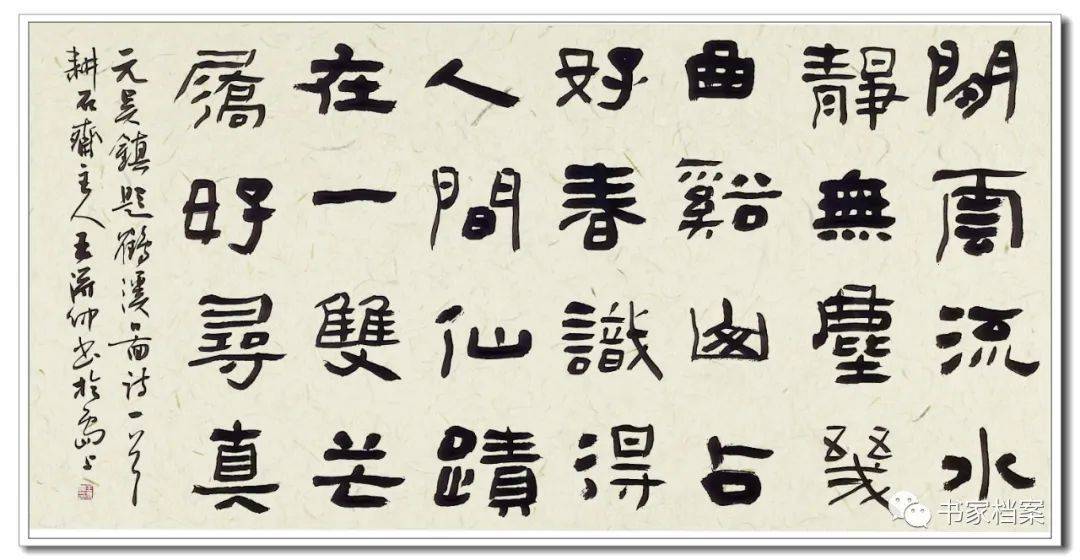 閒雲流水
靜無塵幾
曲谿幽占
好春識得
人間仙蹟
在一雙芒
屩好尋真
元吳鎮題鶴溪圖诗一首
耕石齋主人王仲书於岛上
书家档案